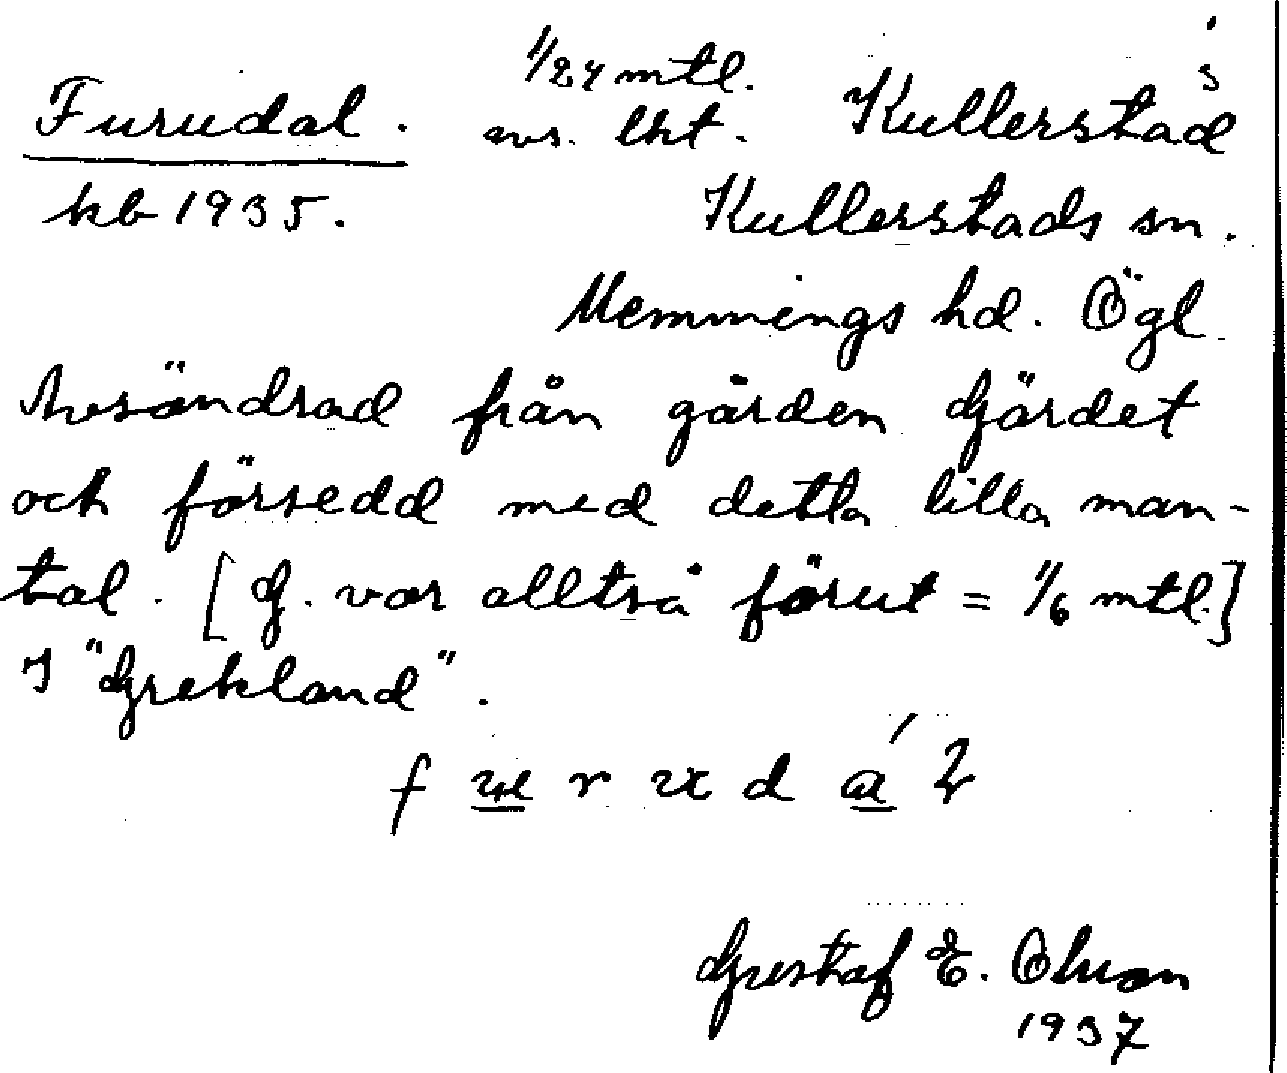 Furudal. 1/24 mtl. avs. lht. Kullerstad s
kb 1935. Kullerstads sn.
Memmings hd. Ögl.
Avsöndrad från gården Gärdet
och försedd med detta lilla man-
tal. [G. var alltså förut = 1/6 mtl.]
I "Grekland".
Gustaf E. Olsson
1937